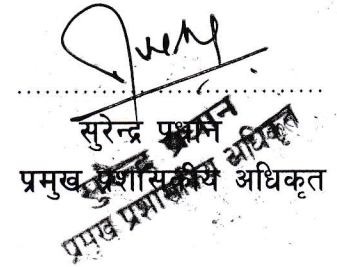 सुरेन्द्र प्रधान
प्रमुख प्रशासकीय अधिकृत
सुरेन्द्र प्रधान
प्रमुख प्रशासकीय अधिकृत